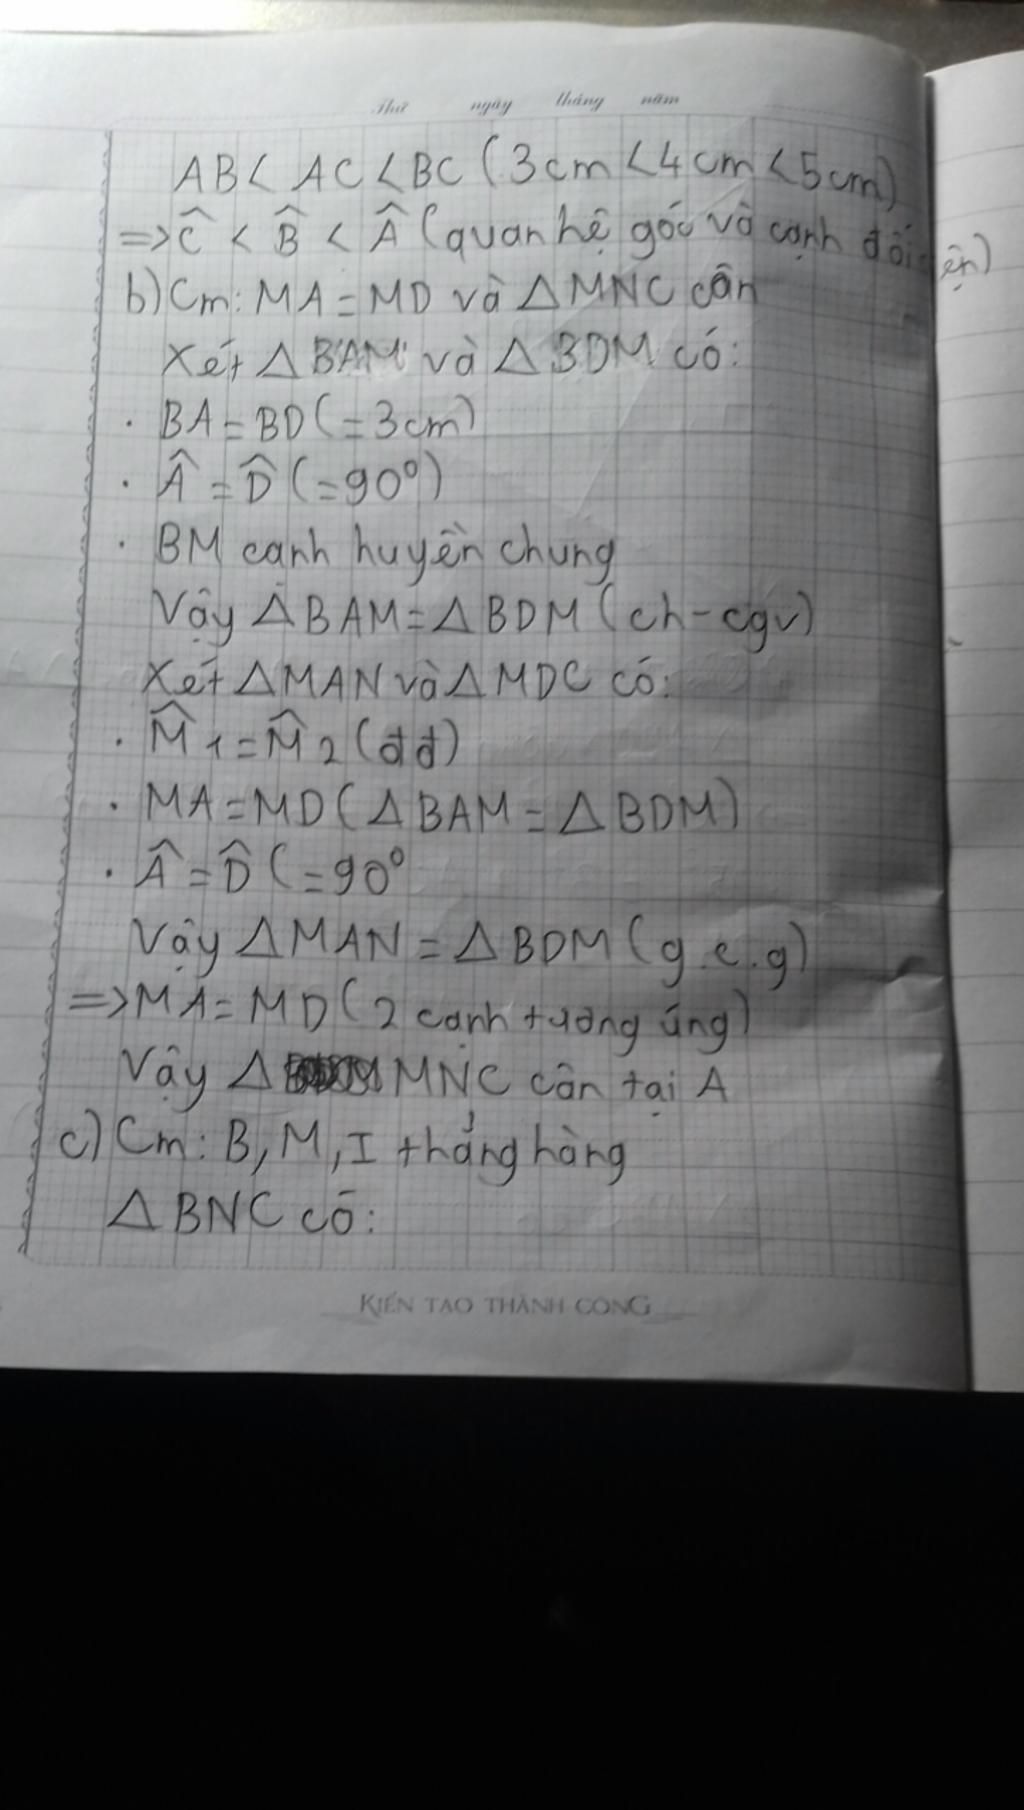 Thứ ngày tháng năm
AB < AC < BC (3cm < 4cm < 5cm)
=> Ĉ < B̂ < Â (quan hệ góc và cạnh đối ện)
b) Cm: MA = MD và △MNC cân
Xét △BAM và △BDM có:
· BA = BD (= 3cm)
· Â = D̂ (= 90°)
· BM cạnh huyền chung
Vậy △BAM = △BDM (ch - cgv)
Xét △MAN và △MDC có:
· M̂1 = M̂2 (đđ)
· MA = MD (△BAM = △BDM)
· Â = D̂ (= 90°
Vậy △MAN = △BDM (g.c.g)
=> MA = MD (2 cạnh tương ứng)
Vậy △ MNC cân tại A
c) Cm: B, M, I thẳng hàng
△BNC có:
KIẾN TẠO THÀNH CÔNG